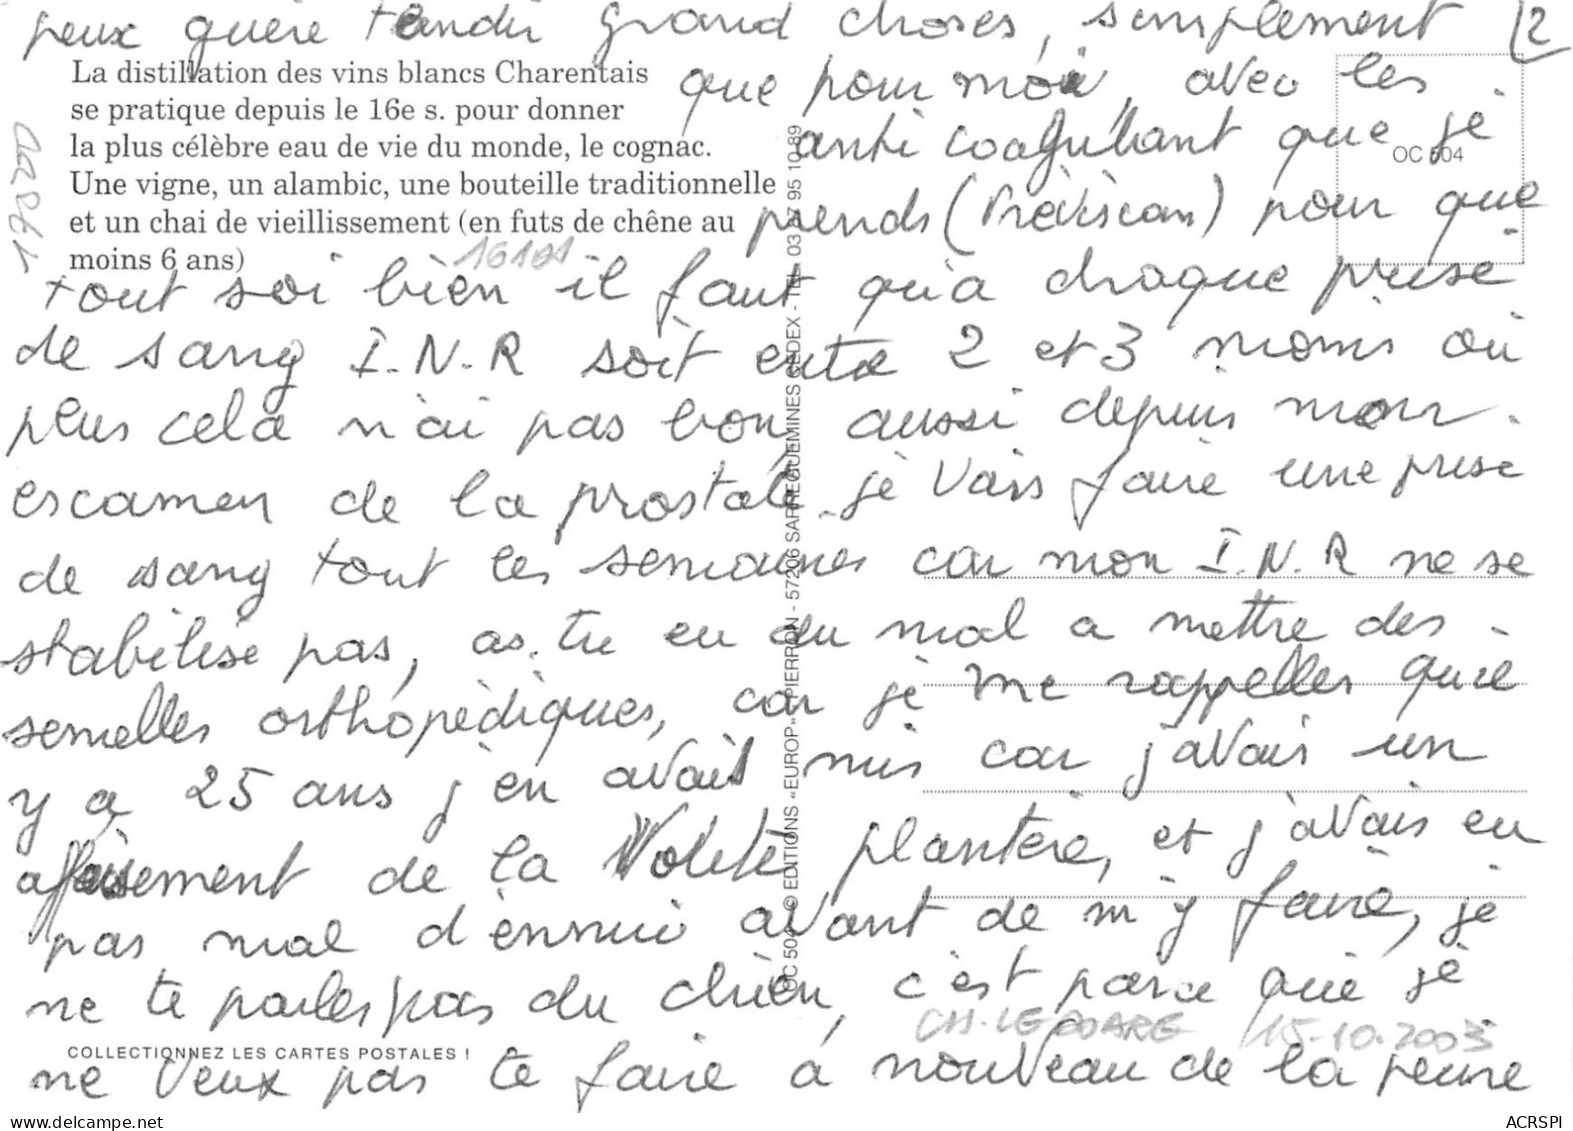 peux guère tendir grand choses, simplement 2
La distillation des vins blancs Charentais
se pratique depuis le 16e s. pour donner
la plus célèbre eau de vie du monde, le cognac.
Une vigne, un alambic, une bouteille traditionnelle
et un chai de vieillissement (en futs de chêne au
moins 6 ans)
que pour moi, avec les
anti coagulant que je
prends (Préviscan) pour que
OC 504
16101
tout soi bien il faut qu'a chaque prise
de sang I.N.R soit entre 2 et 3 moins où
plus cela n'ai pas bon, aussi depuis mon
escamen de la prostate je vais faire une prise
de sang tout les semaines car mon I.N.R ne se
stabilise pas, as.tu eu du mal a mettre des
semelles orthopèdiques, car je me rappelles que
y a 25 ans j'en avait mis car j'avais un
afaisement de la Volute plantère, et j'avais eu
pas mal d'ennui avant de m'y faire, je
ne te parles pas du chien, c'est parce que je
CH. LE DOARE 15.10.2003
COLLECTIONNEZ LES CARTES POSTALES !
ne veux pas te faire à nouveau de la peine
OC 504 © EDITIONS «EUROP» PIERRON - 57206 SARREGUEMINES CEDEX - TEL. 03 87 95 10 89
ACRSPI